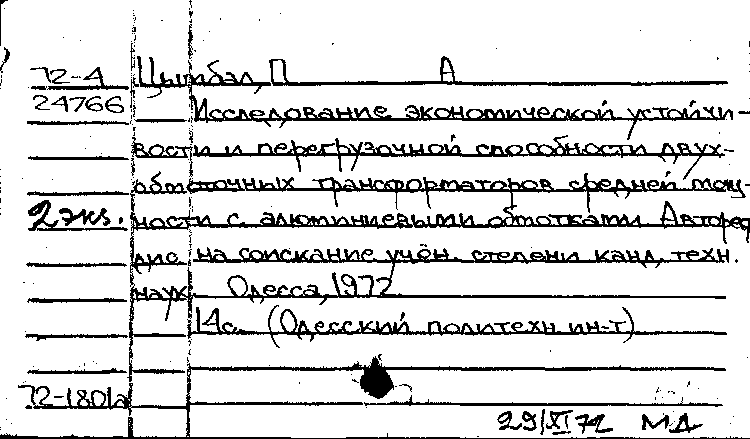 72-4 Цымбал, П А
24766 Исследование экономической устойчи-
вости и перегрузочной способности двух-
обмоточных трансформаторов средней мощ-
2 экз. ности с алюминиевыми обмотками Автореф
дис. на соискание учён. степени канд. техн.
наук. Одесса, 1972.
14с. (Одесский политехн ин-т)
72-1801а
29/XI 72 МД